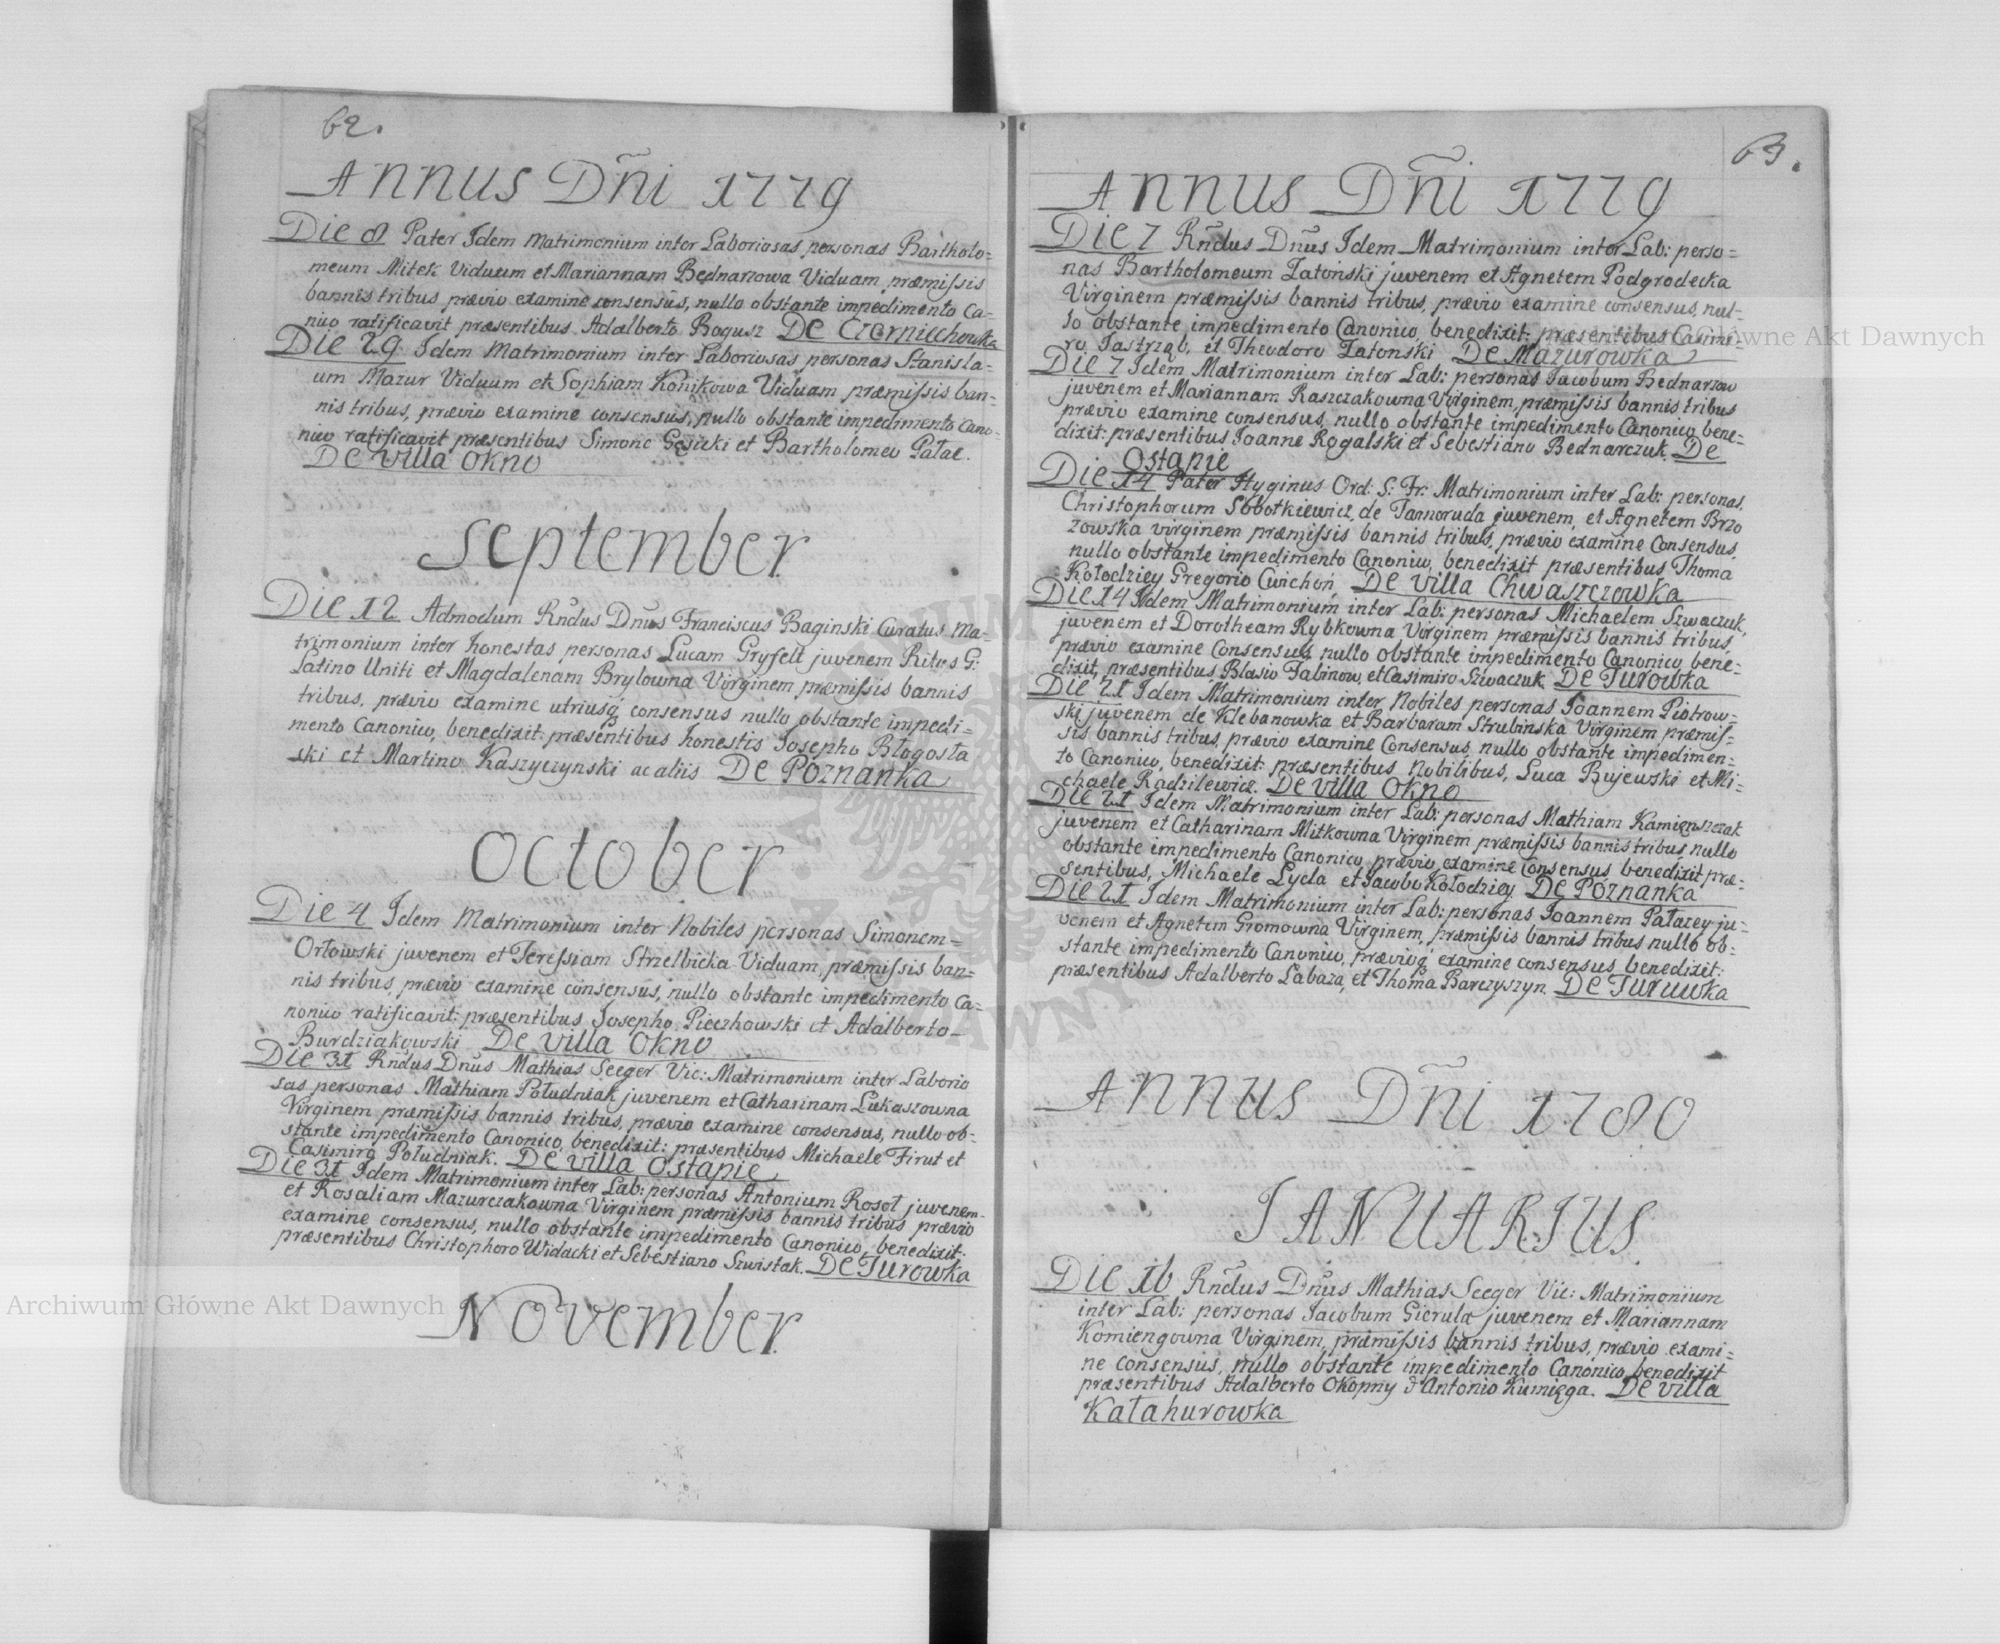 62.
Annus Dñi 1779
Die 8 Pater Idem Matrimonium inter Laboriosas personas Bartholo=
meum Mitek Viduum et Mariannam Bednarzowa Viduam, præmissis
bannis tribus prævio examine consensûs, nullo obstante impedimento Ca=
nico ratificavit præsentibus Adalberto Bogusz De Czerniechowka
Die 29 Idem Matrimonium inter Laboriosas personas Stanisla=
um Mazur Viduum et Sophiam Konikowa Viduam præmissis ban=
nis tribus, prævio examine consensus, nullo obstante impedimento Cano=
nico ratificavit præsentibus Simone Gęsicki et Bartholomeo Pałac.
De villa Okno
September
Die 12 Admodum Rñdus Dnus Franciscus Baginski Curatus Ma=
trimonium inter honestas personas Lucam Gryfelt juvenem Ritus G:
Latino Uniti et Magdalenam Brylowna Virginem, præmissis bannis
tribus, prævio examine utriusq consensus nullo obstante impedi=
mento Canonico, benedixit: præsentibus honestis Josepho Błogosła
ski et Martino Kaszyczynski ac aliis De Poznanka
October
Die 4 Idem Matrimonium inter Nobiles personas Simonem=
Orłowski juvenem et Teressiam Strzelbicka Viduam, præmissis ban=
nis tribus, prævio examine consensûs, nullo obstante impedimento Ca=
nonico ratificavit: præsentibus Josepho Pieczhowski et Adalberto
Burdziakowski De villa Okno
Die 31 Rñdus Dnus Mathias Seeger Vic: Matrimonium inter Laborio
sas personas Mathiam Południak juvenem et Catharinam Lukaszowna
Virginem præmissis bannis tribus, prævio examine consensus, nullo ob=
stante impedimento Canonico, benedixit: præsentibus Michaele Firut et
Casimiro Południak. De villa Ostapie
Die 31 Idem Matrimonium inter Lab: personas Antonium Rosoł juvenem
et Rosaliam Mazurczakowna Virginem præmissis bannis tribus prævio
examine consensus, nullo obstante impedimento Canonico, benedixit:
præsentibus Christophoro Widacki et Sebestiano Szwistak. De Turowka
November
63.
Annus Dñi 1779
Die 7 Rñdus Dnus Idem Matrimonium inter Lab: perso=
nas Bartholomeum Zatoński juvenem et Agnetem Podgrodecka
Virginem præmissis bannis tribus, prævio examine consensus, nul=
lo obstante impedimento Canonico, benedixit: præsentibus Casimi=
ro Jastrząb, et Theodoro Zatonski De Mazurowka
Die 7 Idem Matrimonium inter Lab: personas Jacobum Bednarzow
juvenem et Mariannam Raszczakowna Virginem, præmissis bannis tribus
prævio examine consensus, nullo obstante impedimento Canonico, bene=
dixit: præsentibus Joanne Rogalski et Sebestiano Bednarczuk. De
Ostapie
Die 14 Pater Hyginus Ord: S: Fr: Matrimonium inter Lab: personas,
Christophorum Sobotkiewicz, de Tarnoruda juvenem, et Agnetem Brzo
zowska virginem præmissis bannis tribus, prævio examine Consensus,
nullo obstante impedimento Canonico, benedixit præsentibus Thoma
Kołodziey Gregorio Cwichoń, De villa Chwaszczowka
Die 14 Idem Matrimonium inter Lab: personas Michaelem Szwaczuk,
juvenem et Dorotheam Rybkowna Virginem præmissis bannis tribus,
prævio examine Consensus, nullo obstante impedimento Canonico, bene=
dixit, præsentibus Blasio Fabinow, et Casimiro Szwaczuk. De Turowka
Die 21 Idem Matrimonium inter Nobiles personas Joannem Piotrow=
ski juvenem de Klebanowka et Barbaram Strubinska Virginem præmis=
sis bannis tribus, prævio examine Consensus, nullo obstante impedimen=
to Canonico, benedixit: præsentibus Nobilibus, Luca Bujewski et Mi=
chaele Radzilewicz. De villa Okno
Die 21 Idem Matrimonium inter Lab: personas Mathiam Kamięnszczak
juvenem et Catharinam Mitkowna Virginem præmissis bannis tribus, nullo
obstante impedimento Canonico, prævio examine Consensus benedixit præ=
sentibus, Michaele Lyda et Jacobo Kołodziey De Poznanka
Die 21 Idem Matrimonium inter Lab: personas Joannem Pałacey ju=
venem et Agnetem Gromowna Virginem, præmissis bannis tribus nullo ob=
stante impedimento Canonico, prævioq examine consensus benedixit:
præsentibus Adalberto Łabaza, et Thoma Barczyszyn. De Turuwka
Annus Dñi 1780
IANUARIUS
Die 16 Rñdus Dnus Mathias Seeger Vic: Matrimonium
inter Lab: personas Jacobum Gierula juvenem et Mariannam
Komiengowna Virginem, præmissis bannis tribus, prævio exami=
ne consensus, nullo obstante impedimento Canonico, benedixit
præsentibus Adalberto Okopny & Antonio Kumięga. De villa
Kałahurowka
Archiwum Główne Akt Dawnych
Główne Akt Dawnych